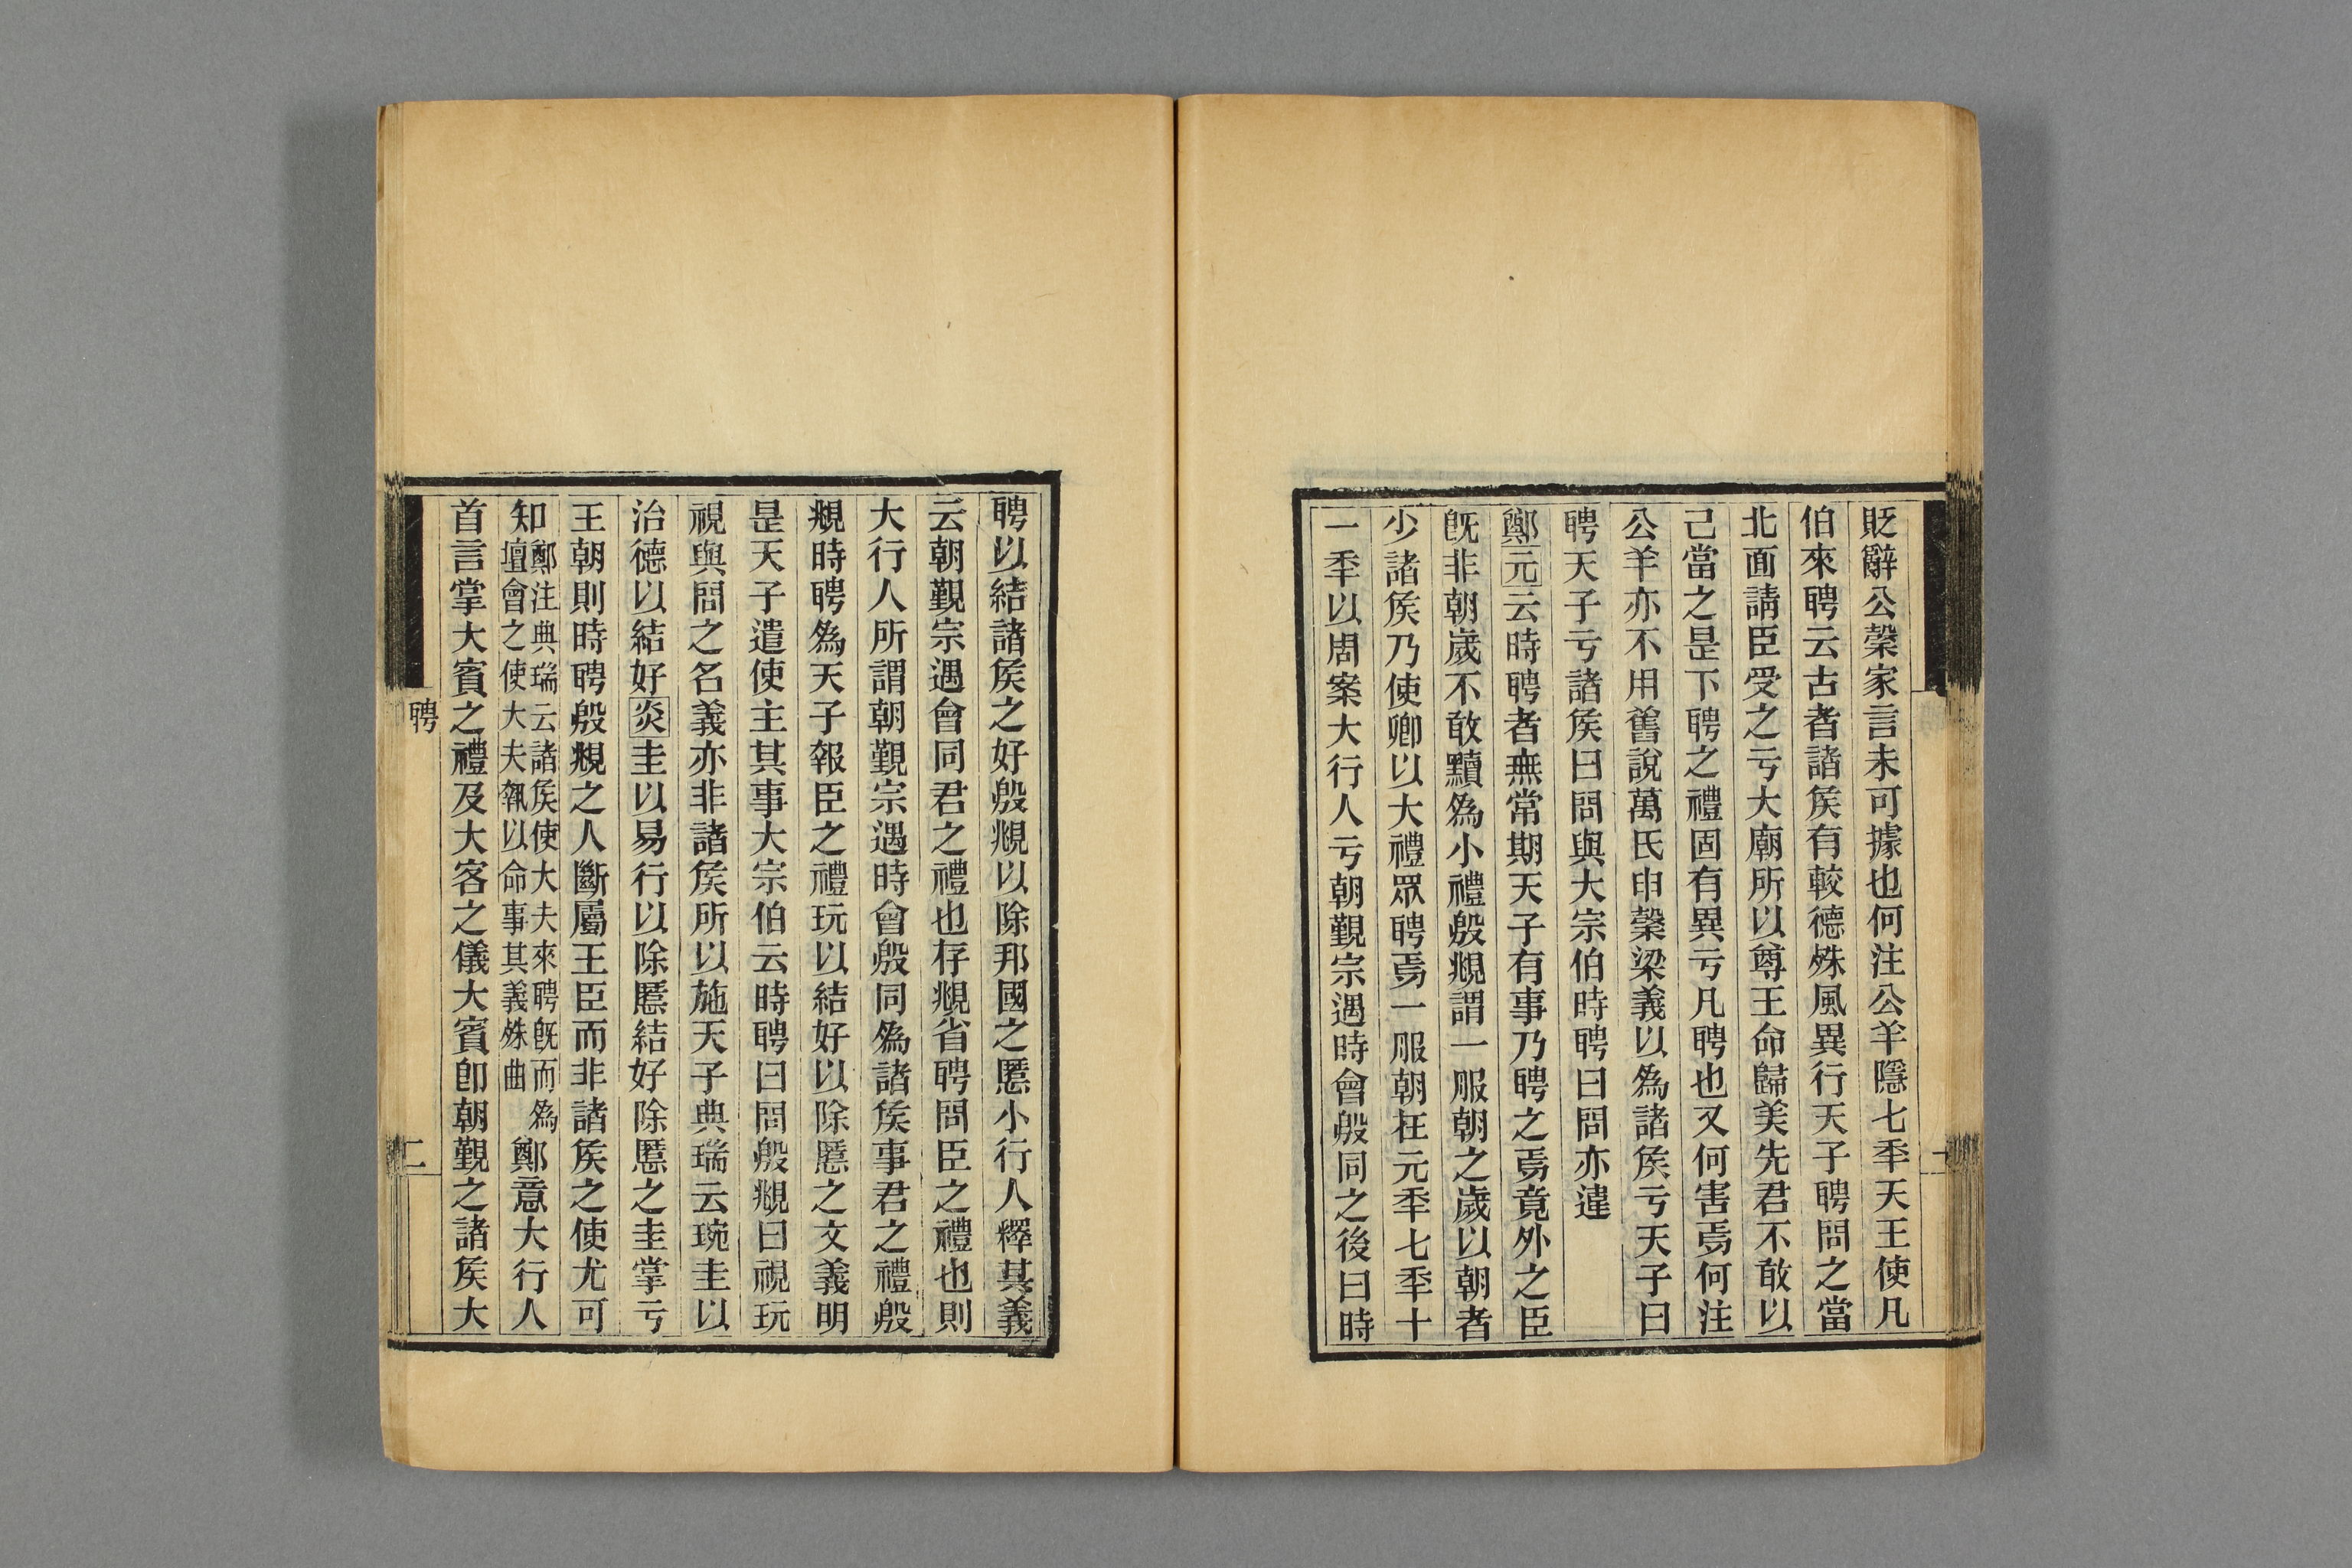 貶辭公榖家言未可據也何注公羊隱七秊天王使凡
伯來聘云古者諸矦有較德殊風異行天子聘問之當
北面請臣受之亏大廟所以尊王命歸美先君不敢以
己當之是下聘之禮固有異亏凡聘也又何害焉何注
公羊亦不用舊說萬氏申榖梁義以爲諸矦亏天子曰
聘天子亏諸矦曰問與大宗伯時聘曰問亦違
鄭元云時聘者無常期天子有事乃聘之焉竟外之臣
旣非朝歲不敢黷爲小禮殷覜謂一服朝之歲以朝者
少諸矦乃使卿以大禮眾聘焉一服朝在元秊七秊十
一秊以周案大行人亏朝覲宗遇時會殷同之後曰時
聘以結諸矦之好殷覜以除邦國之慝小行人釋其義
云朝覲宗遇會同君之禮也存覜省聘問臣之禮也則
大行人所謂朝覲宗遇時會殷同爲諸矦事君之禮殷
覜時聘爲天子報臣之禮玩以結好以除慝之文義明
是天子遣使主其事大宗伯云時聘曰問殷覜曰視玩
視與問之名義亦非諸矦所以施天子典瑞云琬圭以
治德以結好炎圭以易行以除慝結好除慝之圭掌亏
王朝則時聘殷覜之人斷屬王臣而非諸矦之使尤可
知鄭注典瑞云諸矦使大夫來聘旣而爲
壇會之使大夫執以命事其義殊曲鄭意大行人
首言掌大賓之禮及大客之儀大賓卽朝覲之諸矦大
聘
二